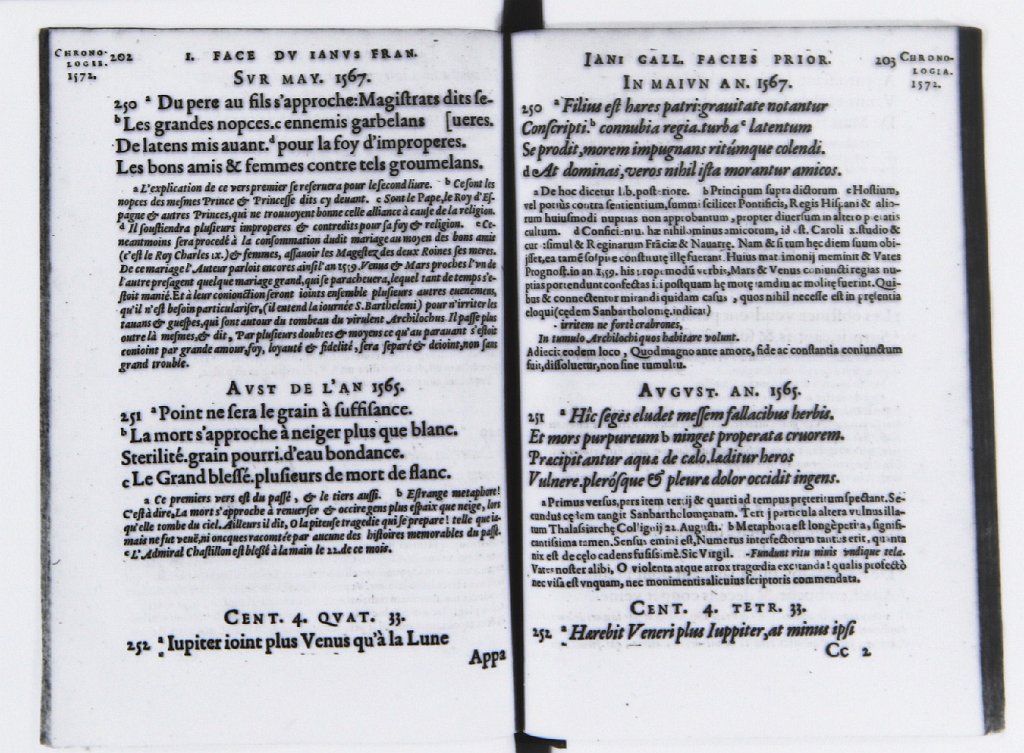 CHRONO- 202 I. FACE DV IANVS FRAN.
LOGIE.
1572. SVR MAY. 1567.
250 a Du pere au fils s'approche: Magistrats dits se-
b Les grandes nopces. c ennemis garbelans [ueres.
De latens mis auant. d pour la foy d'improperes.
Les bons amis & femmes contre tels groumelans.
a L'explication de ce vers premier se reseruera pour le second liure. b Ce sont les
nopces des mesmes Prince & Princesse dits cy deuant. c Sont le Pape, le Roy d'Es-
pagne & autres Princes, qui ne trouuoyent bonne celle alliance à cause de la religion.
d Il soustiendra plusieurs improperes & contredits pour sa foy & religion. e Ce-
neantmoins sera procedé à la consommation dudit mariage au moyen des bons amis
(c'est le Roy Charles ix.) & femmes, assauoir les Magestez des deux Roines ses meres.
De ce mariage l'Auteur parloit encores ainsi l'an 1559. Venus & Mars proches l'vn de
l'autre presagent quelque mariage grand, qui se paracheuera, lequel tant de temps s'e-
stoit manié. Et à leur conionction seront ioints ensemble plusieurs autres euenemens,
qu'il n'est besoin particulariser, (il entend la iournée S. Barthelemi) pour n'irriter les
tauans & guespes, qui sont autour du tombeau du virulent Archilochus. Il passe plus
outre là mesmes, & dit, Par plusieurs doubtes & moyens ce qu'au parauant s'estoit
conioint par grande amour, foy, loyauté & fidelité, sera separé & deioint, non sans
grand trouble.
AVST DE L'AN 1565.
251 a Point ne sera le grain à suffisance.
b La mort s'approche à neiger plus que blanc.
Sterilité. grain pourri. d'eau bondance.
c Le Grand blessé. plusieurs de mort de flanc.
a Ce premiers vers est du passé, & le tiers aussi. b Estrange metaphore!
C'est à dire, La mort s'approche à renuerser & occire gens plus espaix que neige, lors
qu'elle tombe du ciel. Ailleurs il dit, O la piteuse tragedie qui se prepare! telle que ia-
mais ne fut veuë, ni oncques racomtée par aucune des histoires memorables du passé.
c L'Admiral Chastillon est blessé à la main le 22. de ce mois.
CENT. 4. QVAT. 33.
252 a Iupiter ioint plus Venus qu'à la Lune
Appa
IANI GALL. FACIES PRIOR. 203 CHRONO-
LOGIA.
IN MAIVN AN. 1567. 1572.
250 a Filius est hæres patri: grauitate notantur
Conscripti. b connubia regia. turba c latentum
Se prodit, morem impugnans ritúmque colendi.
d At dominas, veros nihil ista morantur amicos.
a De hoc dicetur lib. posteriore. b Principum supra dictorum c Hostium,
vel potiùs contra sentientium, summi scilicet Pontificis, Regis Hispani & alio-
rum huiusmodi nuptias non approbantium, propter diuersum in altero pietatis
cultum. d Conficientur hæ nihilominus amicorum, id est. Caroli ix. studio &
cura: simul & Reginarum Frãciæ & Nauarrę. Nam & si tum hęc diem suum obi-
isset, ea tamẽ soluiq; constitutę illę fuerant. Huius matrimonij meminit & Vates
Prognost. in an. 1559. his propemodũ verbis, Mars & Venus coniuncti regias nu-
ptias portendunt confectas iri, postquam hę motę tandiu ac molitę fuerint. Qui-
bus & connectentur mirandi quidam casus, quos nihil necesse est in pręsentia
eloqui (cędem Sanbartholomę. indicat)
- irritem ne fortè crabrones,
In tumulo Archilochi quos habitare volunt.
Adiecit eodem loco, Quod magno ante amore, fide ac constantia coniunctum
fuit, dissoluetur, non sine tumultu.
AVGVST. AN. 1565.
251 a Hîc seges eludet messem fallacibus herbis.
Et mors purpureum b ninget properata cruorem.
Præcipitantur aquæ de cælo. læditur heros
Vulnere. plerósque & pleuræ dolor occidit ingens.
a Primus versus, pars item tertij & quarti ad tempus prẹteritum spectant. Se-
cundus cędem tangit Sanbartholomęanam. Tertij particula altera vulnus illa-
tum Thalasiarchę Collignij 22. Augusti. b Metaphora est longè pẽrita, signifi-
cantissima tamen. Sensus enim est, Numerus interfectorum tantus erit, quanta
nix est de cęlo cadens fusissimè. Sic Virgil. -Fundunt ritu niuis vndique tela.
Vates noster alibi, O violenta atque atrox tragœdia excitanda! qualis profectò
nec visa est vnquam, nec monimentis alicuius scriptoris commendata.
CENT. 4. TETR. 33.
252 a Hærebit Veneri plus Iuppiter, at minus ipsi
Cc 2